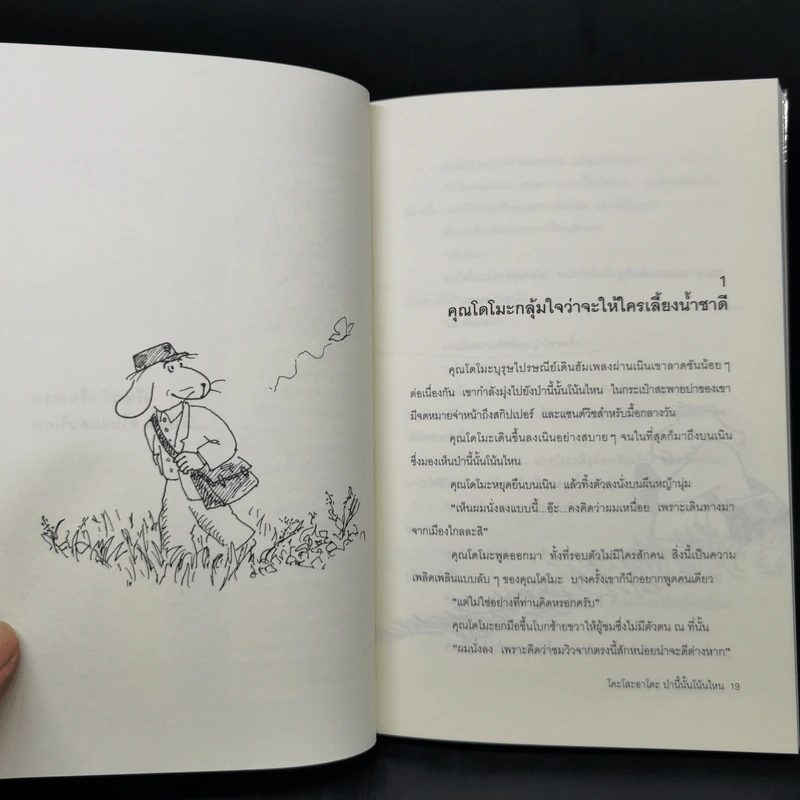 1
คุณโดโมะกลุ้มใจว่าจะให้ใครเลี้ยงน้ำชาดี
คุณโดโมะบุรุษไปรษณีย์เดินฮัมเพลงผ่านเนินเขาลาดชันน้อย ๆ
ต่อเนื่องกัน เขากำลังมุ่งไปยังป่านี้นั้นโน้นไหน ในกระเป๋าสะพายบ่าของเขา
มีจดหมายจ่าหน้าถึงสกิปเปอร์ และแซนด์วิชสำหรับมื้อกลางวัน
คุณโดโมะเดินขึ้นลงเนินอย่างสบาย ๆ จนในที่สุดก็มาถึงบนเนิน
ซึ่งมองเห็นป่านี้นั้นโน้นไหน
คุณโดโมะหยุดยืนบนเนิน แล้วทิ้งตัวลงนั่งบนผืนหญ้านุ่ม
"เห็นผมนั่งลงแบบนี้...อ๊ะ...คงคิดว่าผมเหนื่อย เพราะเดินทางมา
จากเมืองไกลละสิ"
คุณโดโมะพูดออกมา ทั้งที่รอบตัวไม่มีใครสักคน สิ่งนี้เป็นความ
เพลิดเพลินแบบลับ ๆ ของคุณโดโมะ บางครั้งเขาก็นึกอยากพูดคนเดียว
"แต่ไม่ใช่อย่างที่ท่านคิดหรอกครับ"
คุณโดโมะยกมือขึ้นโบกซ้ายขวาให้ผู้ชมซึ่งไม่มีตัวตน ณ ที่นั้น
"ผมนั่งลง เพราะคิดว่าชมวิวจากตรงนี้สักหน่อยน่าจะดีต่างหาก"
โคะโสะอาโดะ ป่านี้นั้นโน้นไหน 19